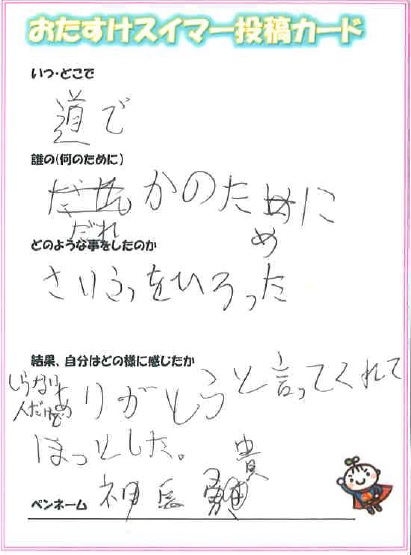 おたすけスイマー投稿カード
いつ・どこで
道で
誰の(何のために)
だれかのために
どのような事をしたのか
さいふをひろった
結果、自分はどの様に感じたか
しらない人だけどありがとうと言ってくれて
ほっとした。
ペンネーム